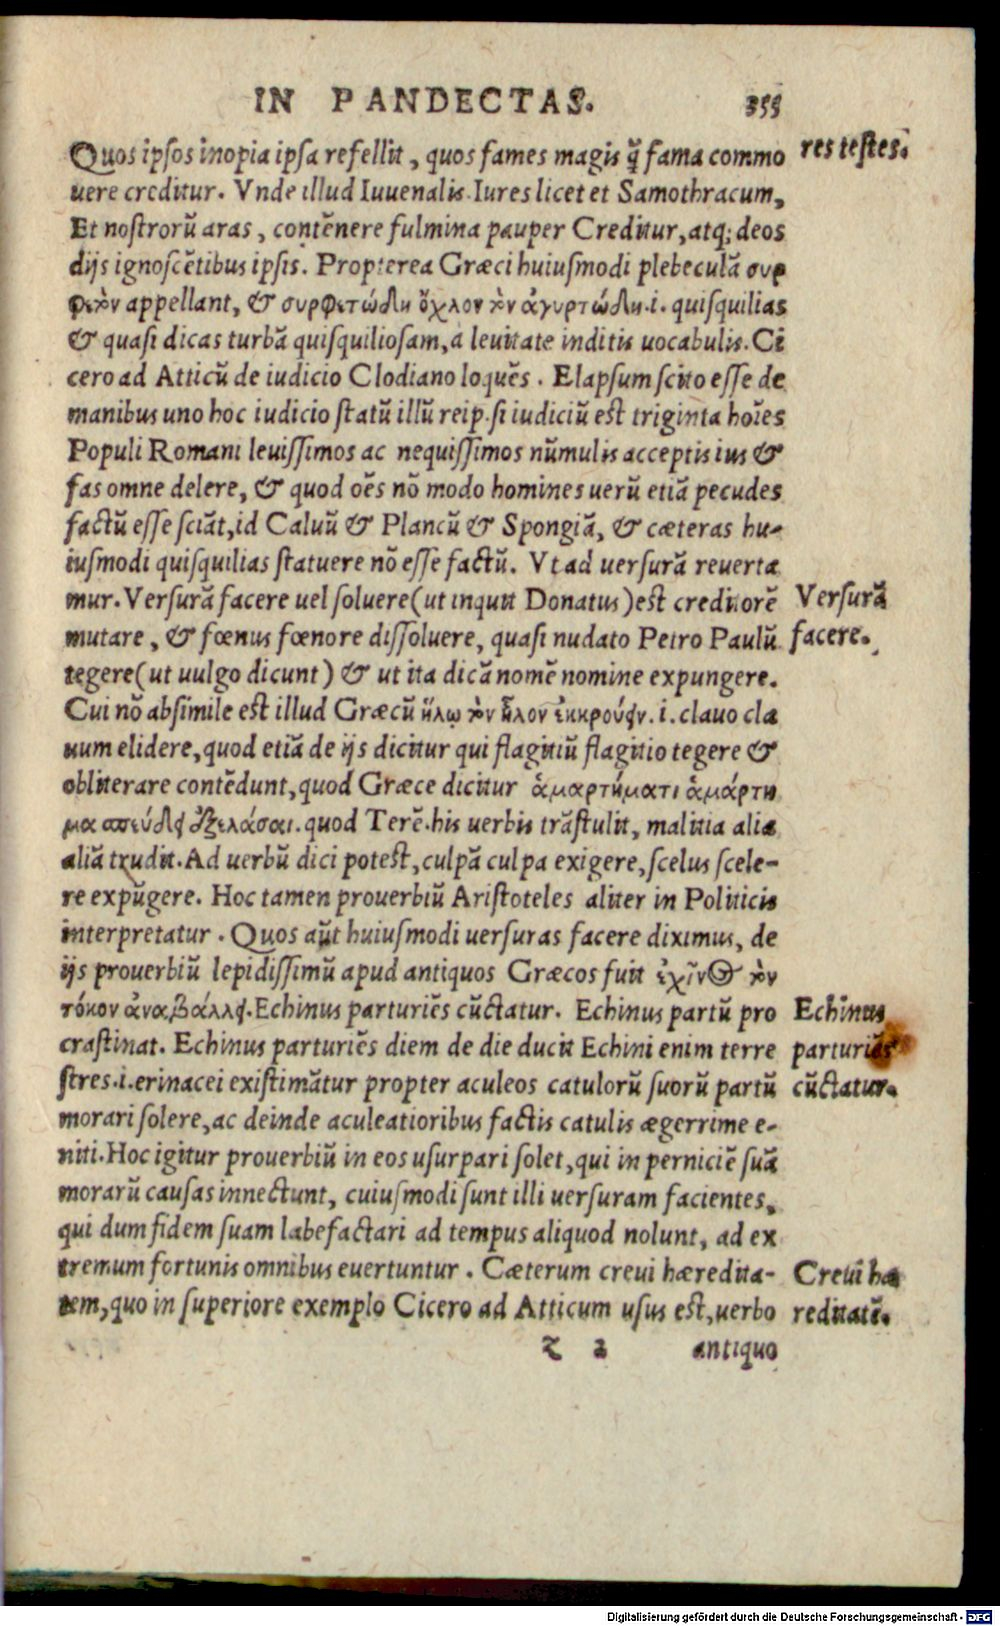 IN PANDECTAS. 355
Quos ipsos inopia ipsa refellit, quos fames magis q̃ fama commo
res testes.
uere creditur. Vnde illud Iuuenalis. Iures licet et Samothracum,
Et nostrorũ aras, contẽnere fulmina pauper Creditur, atq; deos
dijs ignoscẽtibus ipsis. Propterea Græci huiusmodi plebeculã συρ
φετὸν appellant, & συρφετώδη ὄχλον τὸν ἀγυρτώδη .i. quisquilias
& quasi dicas turbã quisquiliosam, a leuitate inditis uocabulis. Ci
cero ad Atticũ de iudicio Clodiano loquẽs. Elapsum scito esse de
manibus uno hoc iudicio statũ illũ reip. si iudiciũ est triginta hoĩes
Populi Romani leuissimos ac nequissimos nũmulis acceptis ius &
fas omne delere, & quod oẽs nõ modo homines uerũ etiã pecudes
factũ esse sciãt, id Caluũ & Plancũ & Spongiã, & cæteras hu-
iusmodi quisquilias statuere nõ esse factũ. Vt ad uersurã reuerta
mur. Versurã facere uel soluere (ut inquit Donatus) est creditorẽ
Versurã
mutare, & fœnus fœnore dissoluere, quasi nudato Petro Paulũ
facere.
tegere (ut uulgo dicunt) & ut ita dicã nomẽ nomine expungere.
Cui nõ absimile est illud Græcũ ἥλῳ τὸν ἧλον ἐκκρούειν .i. clauo cla
uum elidere, quod etiã de ijs dicitur qui flagitiũ flagitio tegere &
obliterare contẽdunt, quod Græce dicitur ἁμαρτήματι ἁμάρτη
μα σπεύδει ἐξελάσαι. quod Terẽ. his uerbis trãstulit, malitia alia
aliã trudit. Ad uerbũ dici potest, culpã culpa exigere, scelus scele-
re expũgere. Hoc tamen prouerbiũ Aristoteles aliter in Politicis
interpretatur. Quos aũt huiusmodi uersuras facere diximus, de
ijs prouerbiũ lepidissimũ apud antiquos Græcos fuit ἐχῖνος τὸν
τόκον ἀναβάλλει. Echinus parturiẽs cũctatur. Echinus partũ pro
Echinus
crastinat. Echinus parturiẽs diem de die ducit Echini enim terre
parturiẽs
stres .i. erinacei existimãtur propter aculeos catulorũ suorũ partũ
cũctatur.
morari solere, ac deinde aculeatioribus factis catulis ægerrime e-
niti. Hoc igitur prouerbiũ in eos usurpari solet, qui in perniciẽ suã
morarũ causas innectunt, cuiusmodi sunt illi uersuram facientes,
qui dum fidem suam labefactari ad tempus aliquod nolunt, ad ex
tremum fortunis omnibus euertuntur. Cæterum creui hæredita-
Creui hæ
tem, quo in superiore exemplo Cicero ad Atticum usus est, uerbo
reditatẽ.
z 2 antiquo
Digitalisierung gefördert durch die Deutsche Forschungsgemeinschaft - DFG